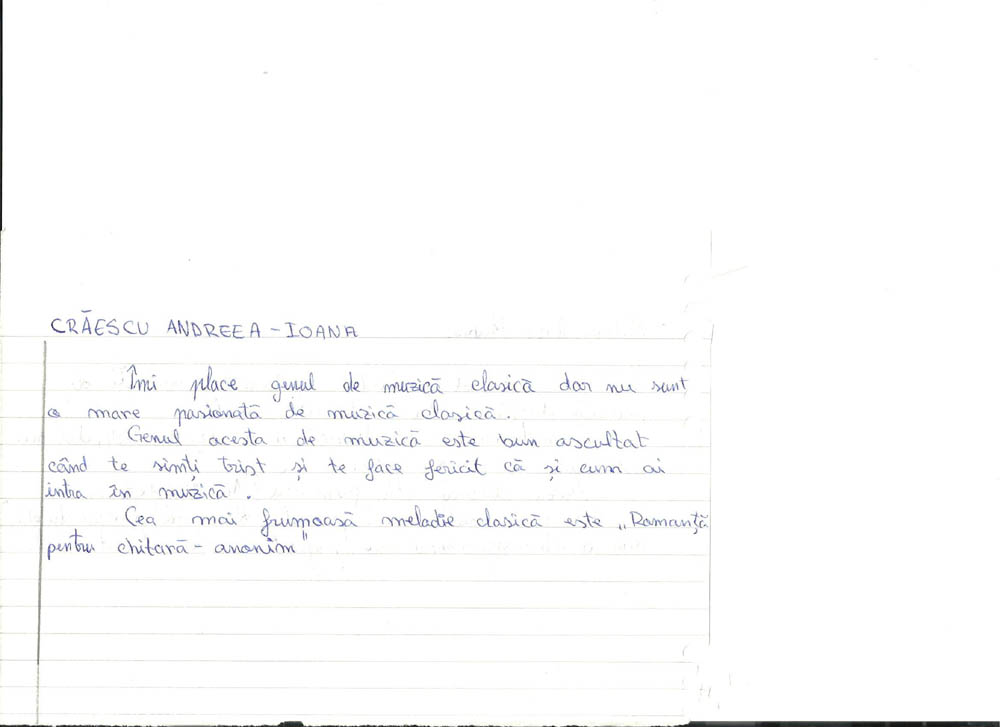 CRĂESCU ANDREEA-IOANA
Îmi place genul de muzică clasică dar nu sunt
o mare pasionată de muzică clasică.
Genul acesta de muzică este bun ascultat
când te simți trist și te face fericit că și cum ai
intra în muzică.
Cea mai frumoasă melodie clasică este „Romanță
pentru chitară - anonim"